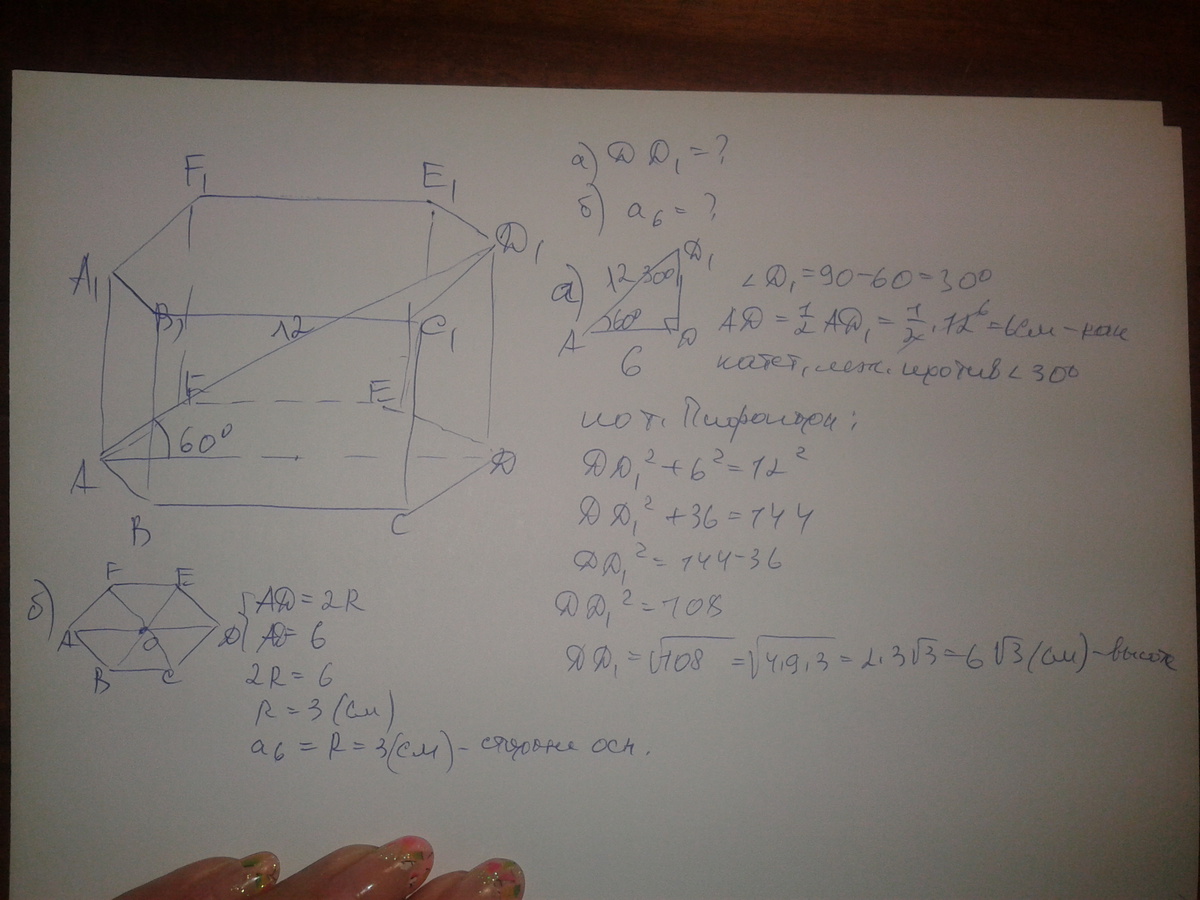 F₁
E₁
D₁
A₁
B₁
12
C₁
F
E
60°
A
D
B
C
а) DD₁ = ?
б) a₆ = ?
а)
12 30°
D₁
60°
A
D
6
∠D₁ = 90 - 60 = 30°
AD = 1/2 AD₁ = 1/2 · 12 ⁶ = 6см - как
катет, леж. против ∠30°
по т. Пифагора:
DD₁² + 6² = 12²
DD₁² + 36 = 144
DD₁² = 144 - 36
DD₁² = 108
DD₁ = √108 = √4·9·3 = 2·3√3 = 6√3 (см) - высота
б)
F E
A O D
B C
{ AD = 2R
AD = 6
2R = 6
R = 3 (см)
a₆ = R = 3 (см) - сторона осн.